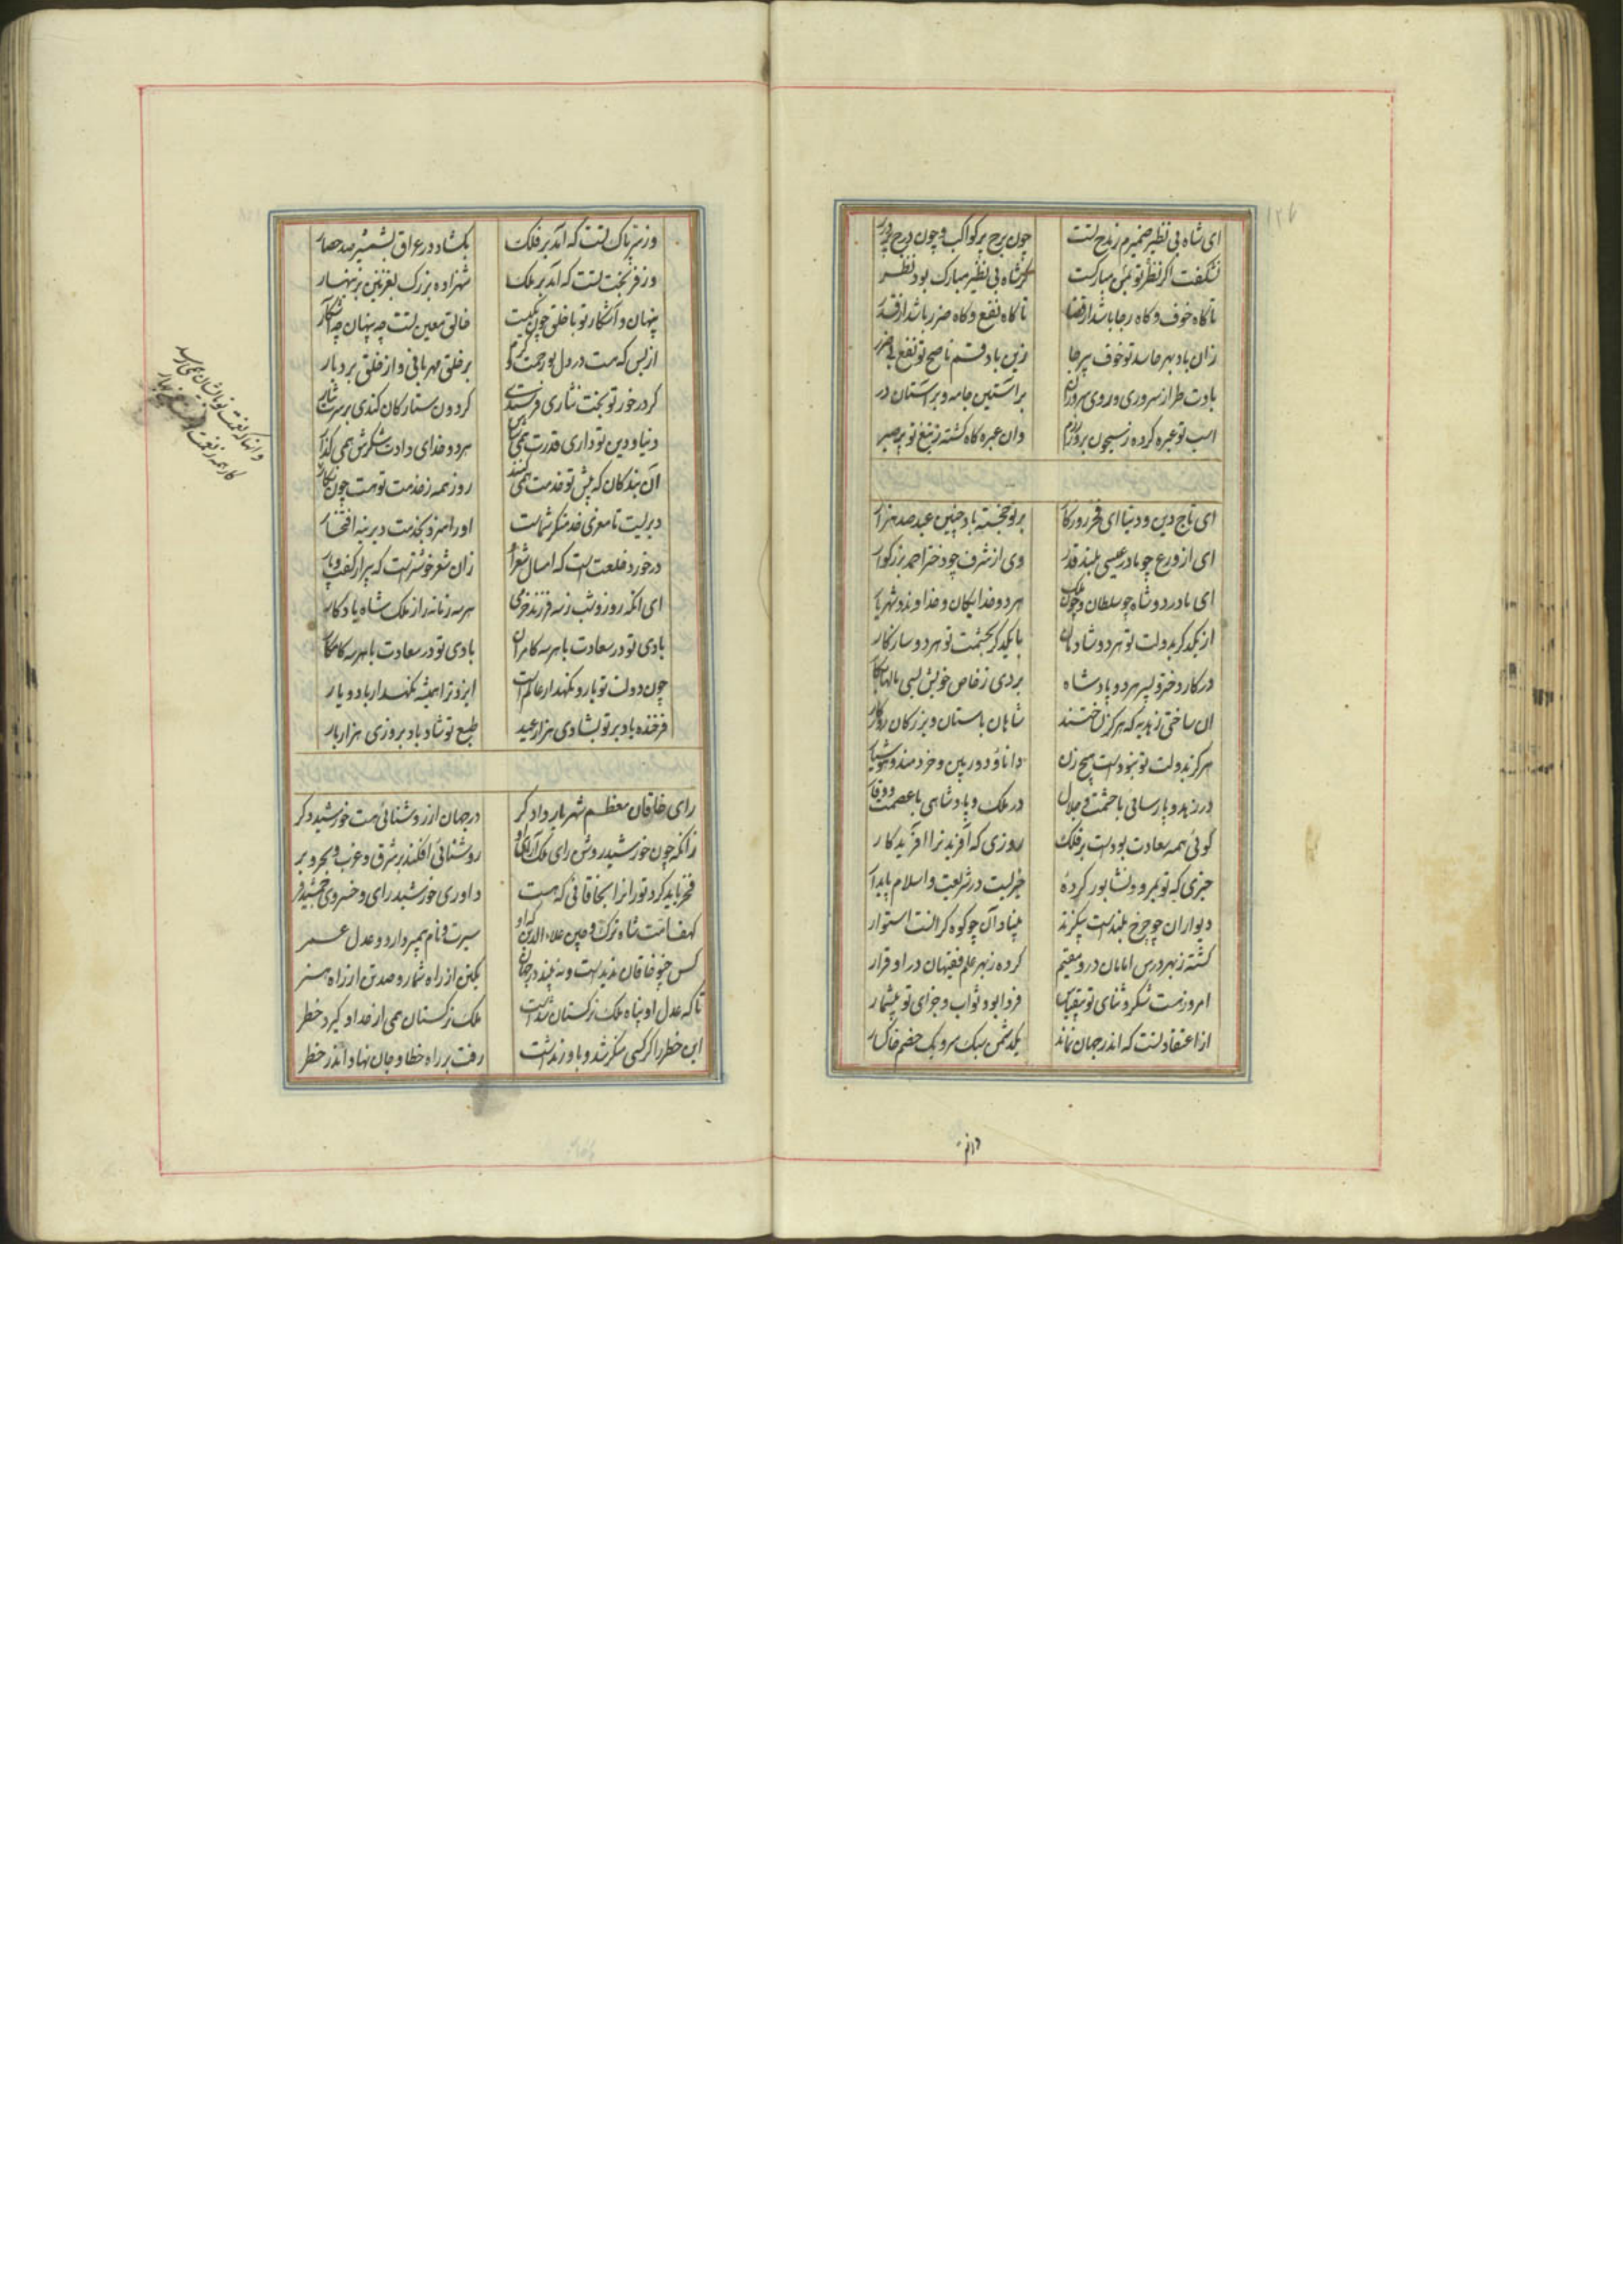 ۱۲۷
ای شاه بی نظیر ضمیرم ز مدح تست چون برج پر کواکب و چون درج پر درر
نشکفت اگر نظر تو بمن مبارکست کز شاه بی نظیر مبارک بود نظر
تا گاه خوف و گاه رجا باشد از قضا تا گاه نفع و گاه ضرر باشد از قدر
زان باد بهر حاسد تو خوف بی رجا زین باد قسم ناصح تو نفع بی ضرر
بادت طراز سروری و روی سروران بر آستین جامه و بر آستان در
اسب تو عبره کرده ز سیحون بروز رزم وان عبره گاه گشته ز تیغ تو پر عبر
ای تاج دین و دنیا ای فخر روزگار بر تو خجسته باد چنین عید صد هزار
ای از ورع چو مادر عیسی بلند قدر وی از شرف چو دختر احمد بزرگوار
ای مادر دو شاه چو سلطان و چون ملک هر دو خدایگان و خداوند و شهریار
از یکدگر بدولت تو هر دو شادمان با یکدگر بحشمت تو هر دو سازگار
در کار دختر و پسر هر دو پادشاه بردی ز خاص خویش بسی مالها بکار
آن ساختی ز هدیه که هرگز نساختند شاهان باستان و بزرگان روزگار
هرگز بدولت تو نبودست هیچ زن دانا و دوربین و خردمند و هوشیار
در زهد و پارسائی با حشمت و جلال در ملک و پادشاهی با عصمت و وقار
گوئی همه سعادت بودست بر فلک روزی که آفرید ترا آفریدگار
خیری که تو بمرو و نشابور کرده خیریست در شریعت و اسلام پایدار
دیوار آن چو چرخ بلندست بی گزند بنیاد آن چو کوه گرانست استوار
گشته ز بهر درس امامان درو مقیم کرده ز بهر علم فقیهان در او قرار
امروز هست شکر و ثنای تو بیقیاس فردا بود ثواب و جزای تو بیشمار
از اعتقاد تست که اندر جهان نماند یک دشمن سبک سر و یک خصم خاکسار
وز نیت
وز سیرت پاک تست که آمد بر فلک بگشاد در عراق بشمشیر صد حصار
وز فر بخت تست که آمد بر ملک شهزاده بزرگ بغزنین بزینهار
پنهان و آشکار تو با خلق چون یکیست خالق معین تست چه پنهان چه آشکار
از بس که هست در دل تو رحمت و کرم بر خلق مهربانی و از خلق بردبار
گر در خور تو بخت نثاری فرستدی گردون ستارگان کندی بر سرت نثار
دنیا و دین تو داری قدرت همی شناس هر دو خدای دادت شکرش همی گذار
وانها که نعمت تو بایشان همی رسد
کار همه ز نعمت
آن بندگان که پیش تو خدمت همی کنند روز همه ز خدمت تو هست چون نگار
دیریست تا معزی خدمتگر شماست او را همی بخدمت دیرینه افتخار
در خورد خلعت است که امسال شعر او زان شعر خوشترست که پیرار گفت و پار
ای آنکه روز و شب ز سه فرزند خرمی هر سه زمانه را ز ملک شاه یادگار
بادی تو در سعادت با هر سه کامران بادی تو در سعادت با هر سه کامکار
چون دولت تو یار و نگهدار عالم است ایزد ترا همیشه نگهدار باد و یار
فرخنده باد بر تو بشادی هزار عید طبع تو شاد باد بروزی هزار بار
رای خاقان معظم شهریار دادگر در جهان از روشنائی هست خورشید دگر
زانکه چون خورشید روشن رای ملک آرای او روشنائی افکند بر شرق و غرب و بحر و بر
فخر باید کرد توران را بخاقانی که هست داوری خورشید رای و خسروی جمشید فر
کهف امت شاه ترک و چین علاء الدین که او سیرت و نام پیمبر دارد و عدل عمر
کس چنو خاقان ندیدست و نه بیند در جهان یکتن از راه شمار و صد تن از راه هنر
تا که عدل او پناه ملک ترکستان شدست ملک ترکستان همی از خلد او گیرد خطر
این خطر را گر کسی منکر شد و باور نداشت رفت بر راه خطا و جان نهاد اندر خطر